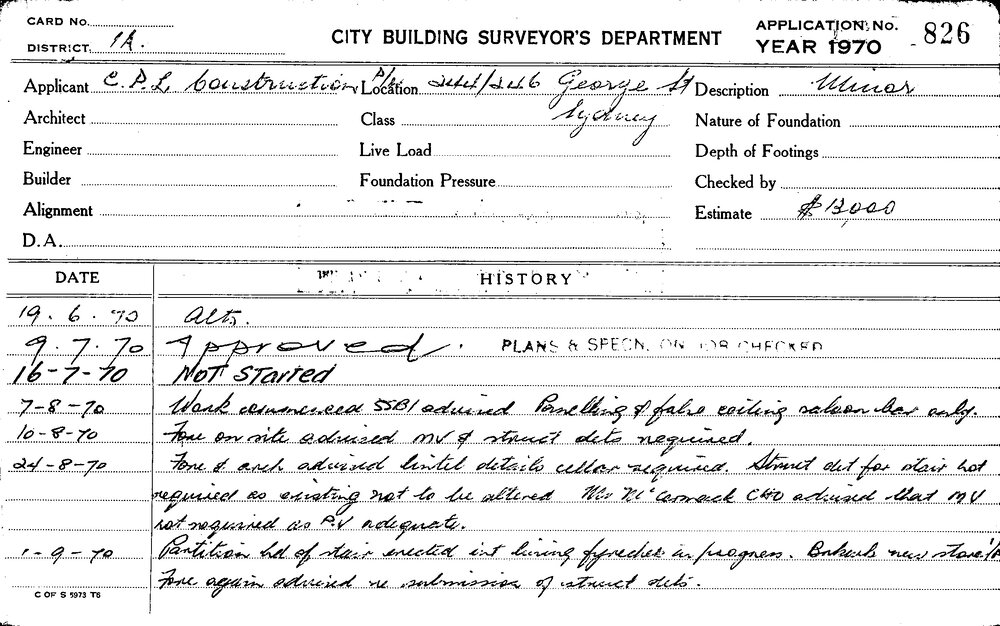 CARD No.
DISTRICT. 1A.
CITY BUILDING SURVEYOR'S DEPARTMENT
APPLICATION. No. 826
YEAR 1970
Applicant C.P.L. Construction P/L Location 244/246 George St Description Minor
Sydney
Architect Class Nature of Foundation
Engineer Live Load Depth of Footings
Builder Foundation Pressure Checked by
Alignment Estimate $12,000
D.A.
DATE HISTORY
19.6.70 Alts.
9.7.70 Approved. PLANS & SPECN. ON JOB CHECKED
16-7-70 NOT Started
7-8-70 Work commenced SSBI advised Panelling & false ceiling saloon bar only.
10-8-70 Fore on site advised MV & struct dets required.
24-8-70 Fore & arch advised lintel details cellar required. Struct det for stair not
required as existing not to be altered Mr McCormack CHO advised that MV
not required as P.V adequate.
1-9-70 Partition hd of stair erected int lining fyrchek in progress. Bwk new store
Fore again advised re submission of struct dets.
C OF S 5973 T6